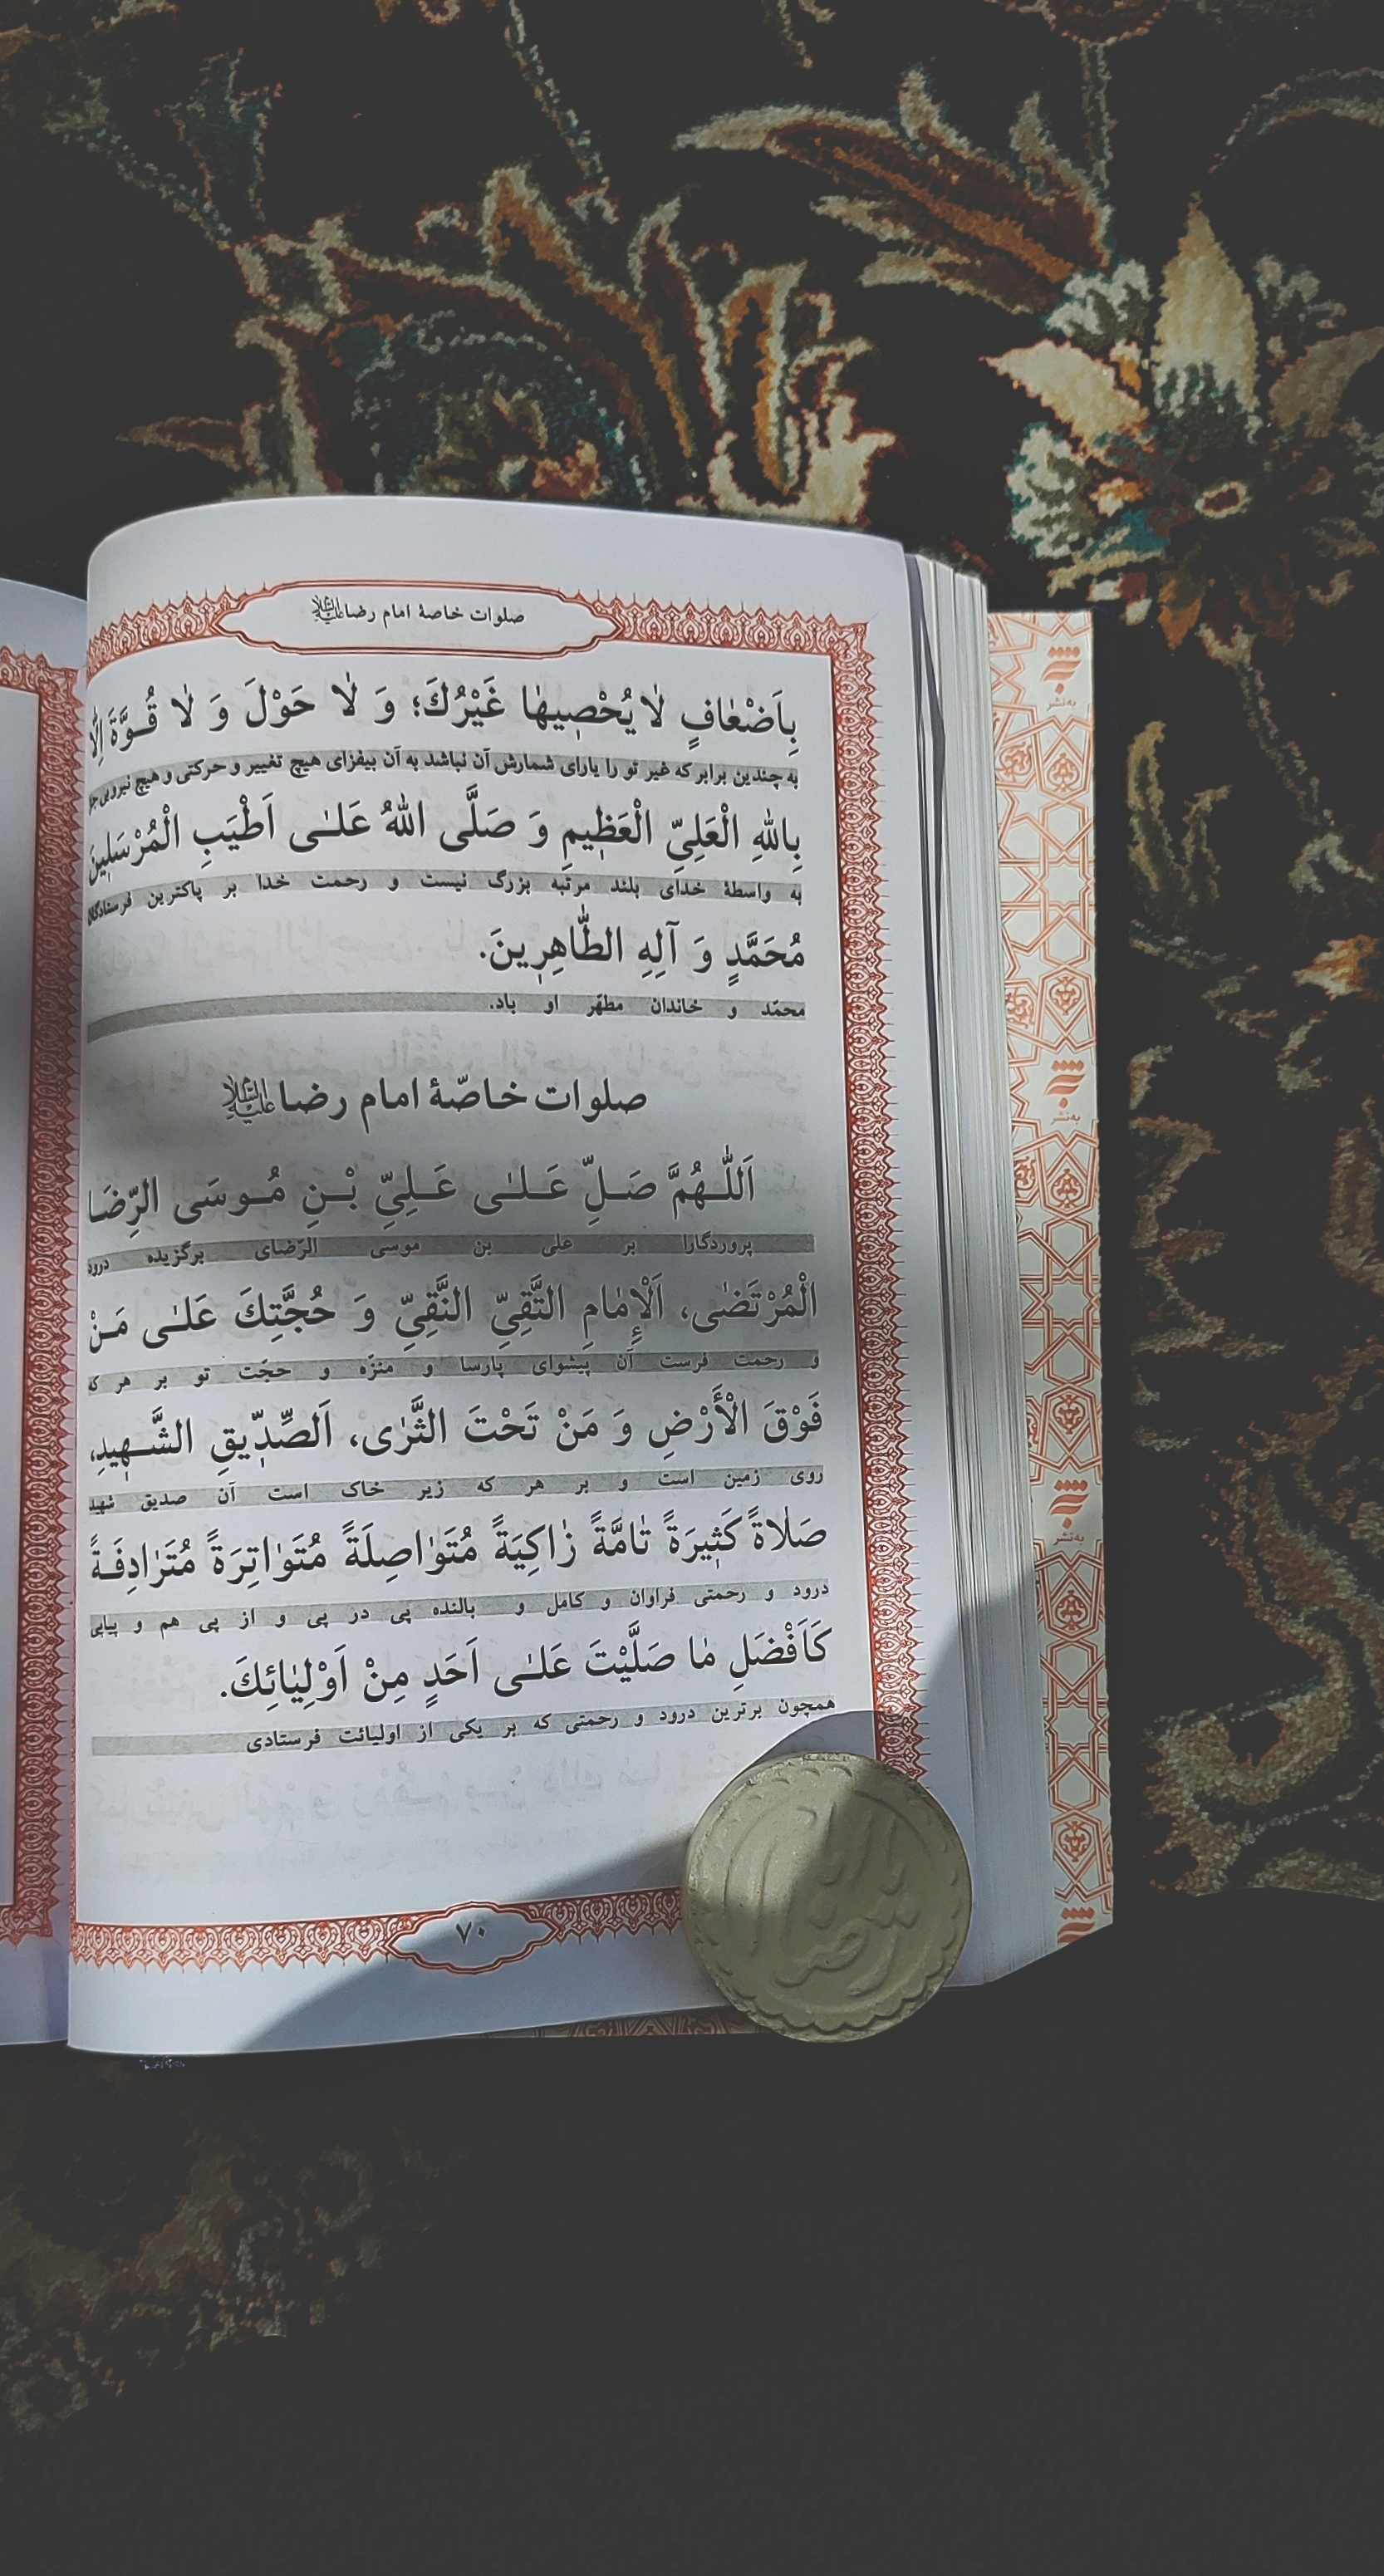 صلوات خاصهٔ امام رضا علیه‌السلام
بِاَضْعٰافٍ لٰا يُحْصِيهٰا غَيْرُكَ؛ وَ لٰا حَوْلَ وَ لٰا قُوَّةَ اِلّٰا
به چندین برابر که غیر تو را یارای شمارش آن نباشد به آن بیفزای هیچ تغییر و حرکتی و هیچ نیرویی جز
بِاللهِ الْعَلِيِّ الْعَظِيمِ وَ صَلَّى اللهُ عَلىٰ اَطْيَبِ الْمُرْسَلِينَ
به واسطهٔ خدای بلند مرتبه بزرگ نیست و رحمت خدا بر پاکترین فرستادگان
مُحَمَّدٍ وَ آلِهِ الطّٰاهِرِينَ.
محمّد و خاندان مطهّر او باد.
صلوات خاصّهٔ امام رضا علیه‌السلام
اَللّٰهُمَّ صَلِّ عَلىٰ عَلِيِّ بْنِ مُوسَى الرِّضَا
پروردگارا بر علی بن موسی الرّضای برگزیده درود
الْمُرْتَضىٰ، اَلْإِمٰامِ التَّقِيِّ النَّقِيِّ وَ حُجَّتِكَ عَلىٰ مَنْ
و رحمت فرست آن پیشوای پارسا و منزّه و حجّت تو بر هر که
فَوْقَ الْأَرْضِ وَ مَنْ تَحْتَ الثَّرىٰ، اَلصِّدِّيقِ الشَّهِيدِ،
روی زمین است و بر هر که زیر خاک است آن صدیق شهید
صَلاةً كَثِيرَةً تٰامَّةً زٰاكِيَةً مُتَوٰاصِلَةً مُتَوٰاتِرَةً مُتَرٰادِفَةً
درود و رحمتی فراوان و کامل و بالنده پی در پی و از پی هم و پیاپی
كَاَفْضَلِ مٰا صَلَّيْتَ عَلىٰ اَحَدٍ مِنْ اَوْلِيٰائِكَ.
همچون برترین درود و رحمتی که بر یکی از اولیائت فرستادی
۷۰
یا امام رضا
به‌نشر
به‌نشر
به‌نشر